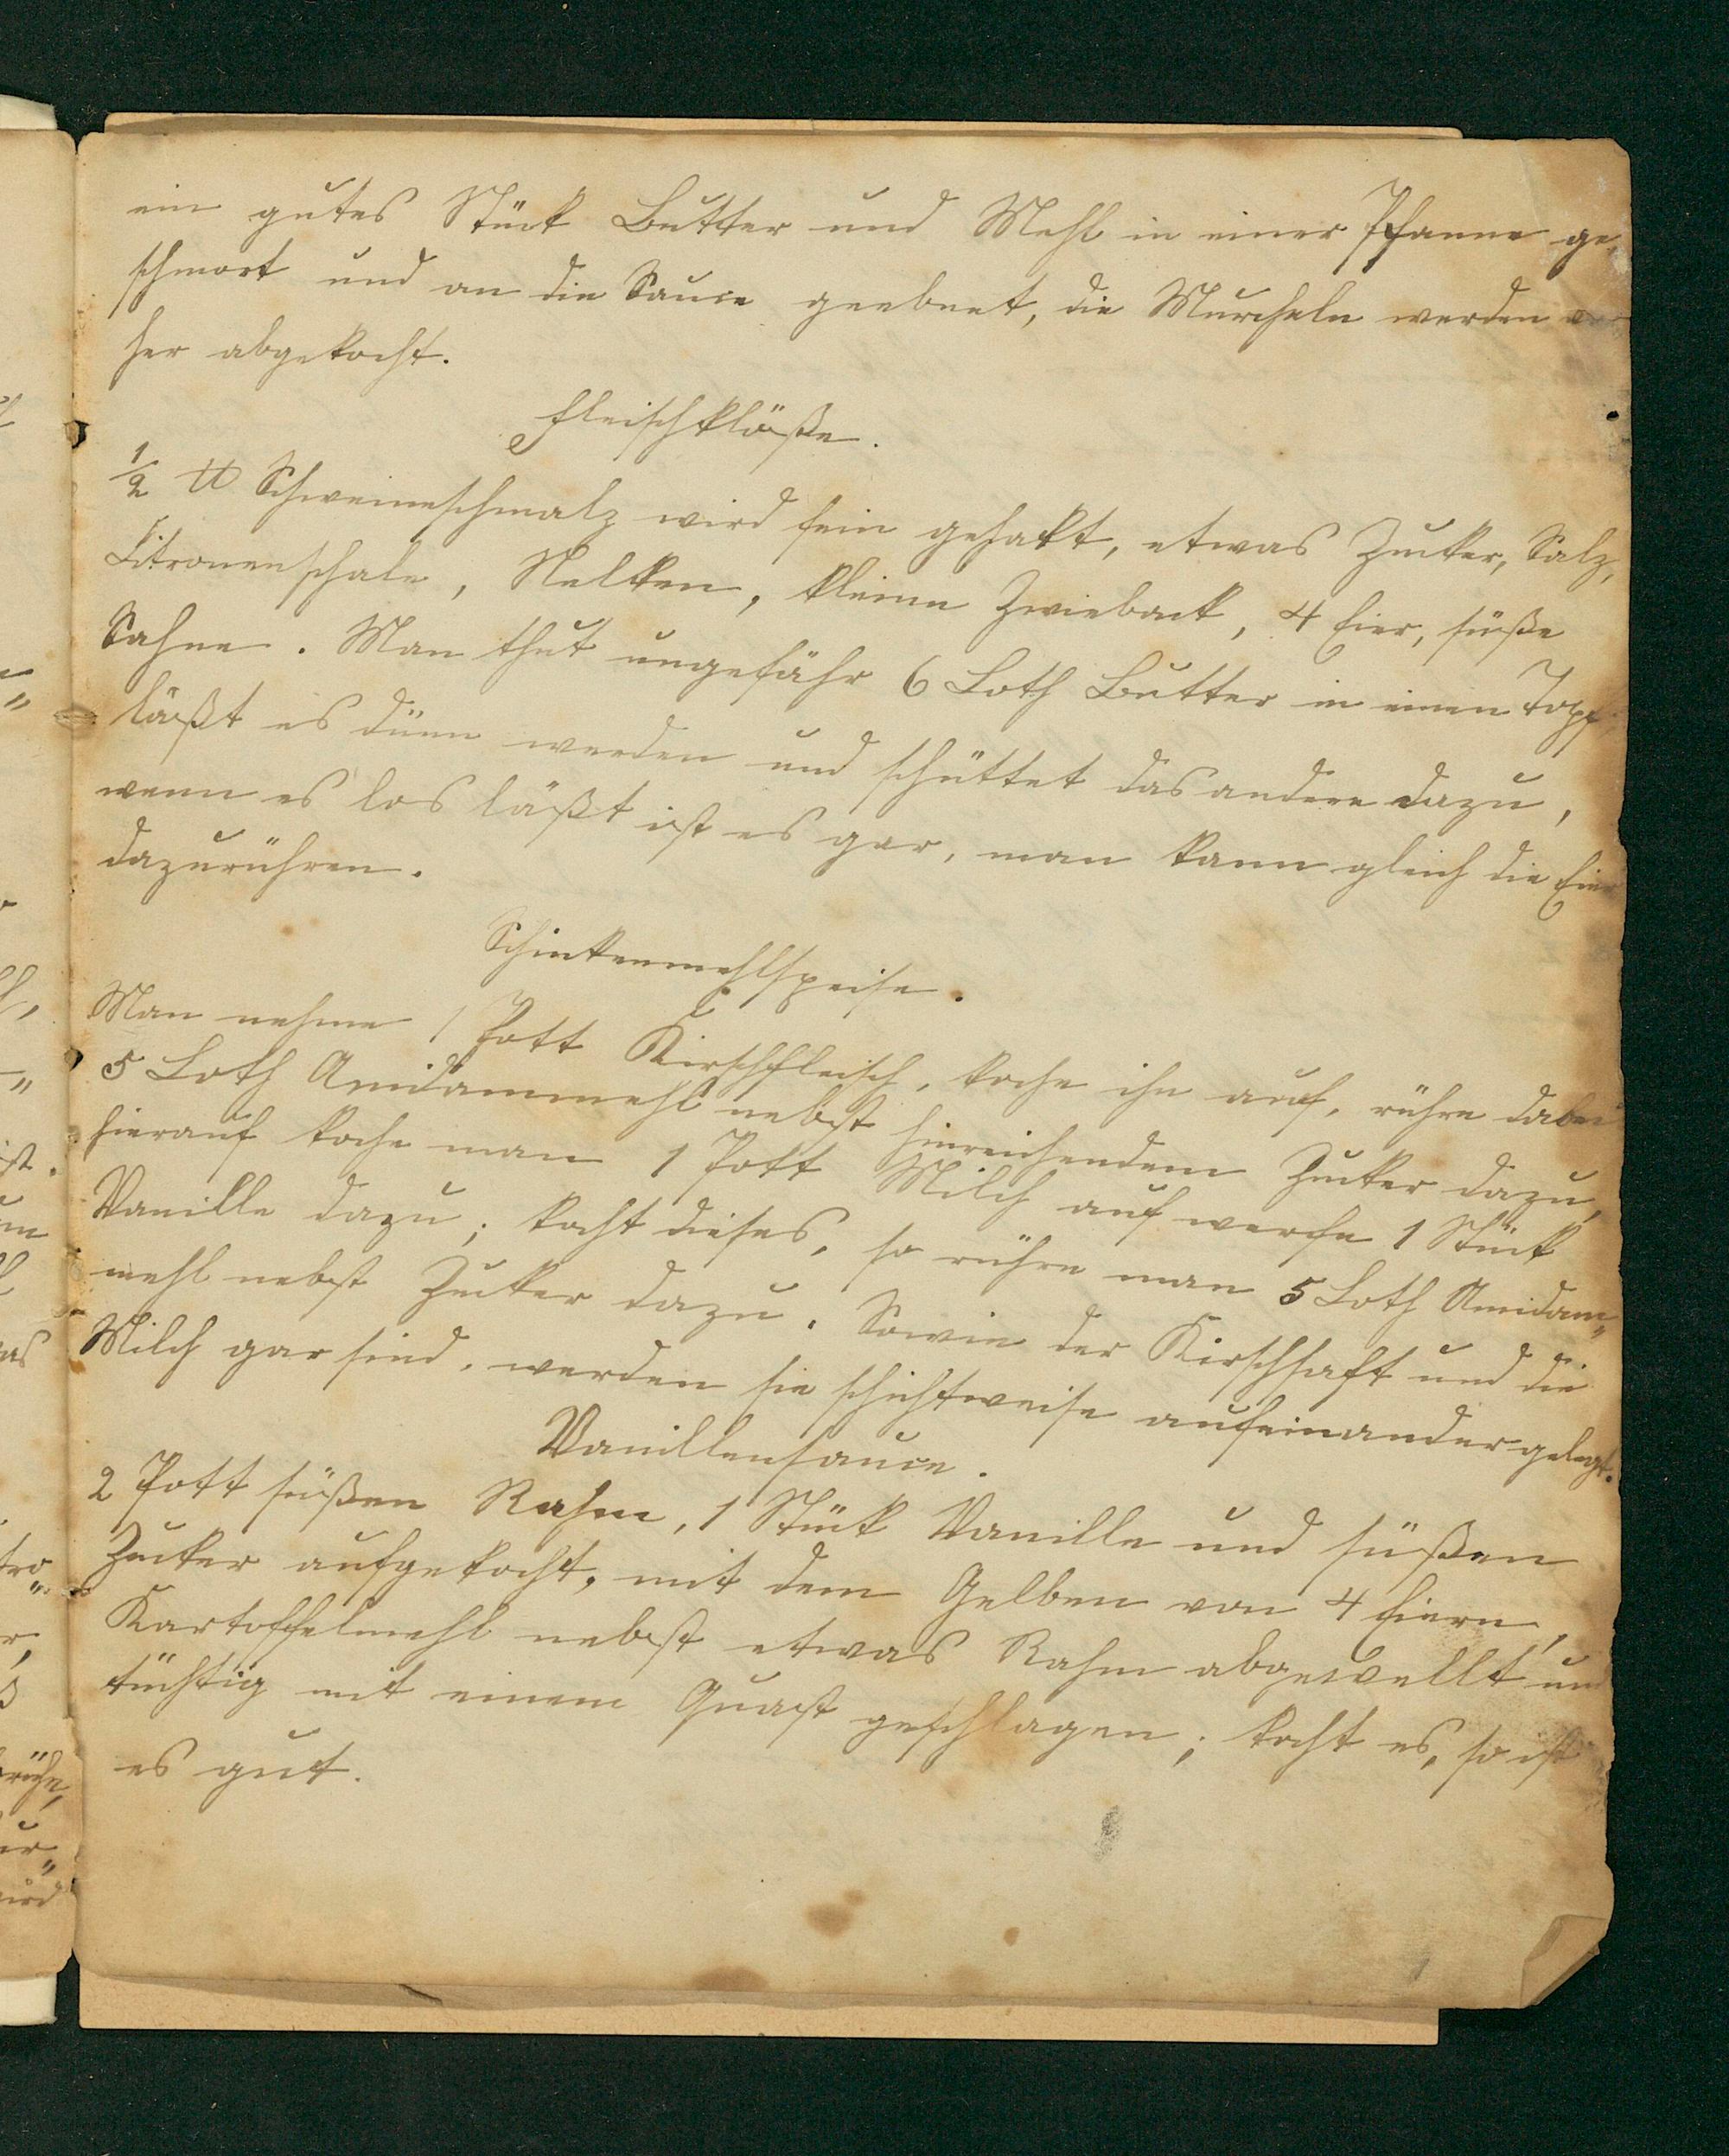 ein gutes Stück Butter und Mehl in einer Pfanne ge-
schmort und an die Sauce geebnet, die Murcheln werden vor
her abgekocht.
Fleischklöße.
1/2 ℔ Schweineschmalz wird fein gehakt, etwas Zucker, Salz,
Citronenschale, Nelken, kleine Zwieback, 4 Eier, süße
Sahne. Man thut ungefähr 6 Loth Butter in einen Topf
läßt es dünn werden und schüttet das andere dazu,
wenn es los läßt ist es gar, man kann gleich die Eier
dazurühren.
Schinkenmehlspeise.
Man nehme 1 Pott Kirschfleisch, koche ihn auf, rühre dabei
5 Loth Amidammehl nebst hinreichendem Zucker dazu,
hierauf koche man 1 Pott Milch auf werfe 1 Stück
Vanille dazu; kocht dieses, so rühre man 5 Loth Amidam„
mehl nebst Zucker dazu. Sowie der Kirschsaft und die
Milch gar sind, werden sie schichtweise aufeinander gelegt.
Vanillensauce.
2 Pott süßen Rahm, 1 Stück Vanille und süßen
Zucker aufgekocht, mit dem Gelben von 4 Eiern,
Kartoffelmehl nebst etwas Rahm abgewellt und
tüchtig mit einem Quast geschlagen; kocht es, so ist
es gut.